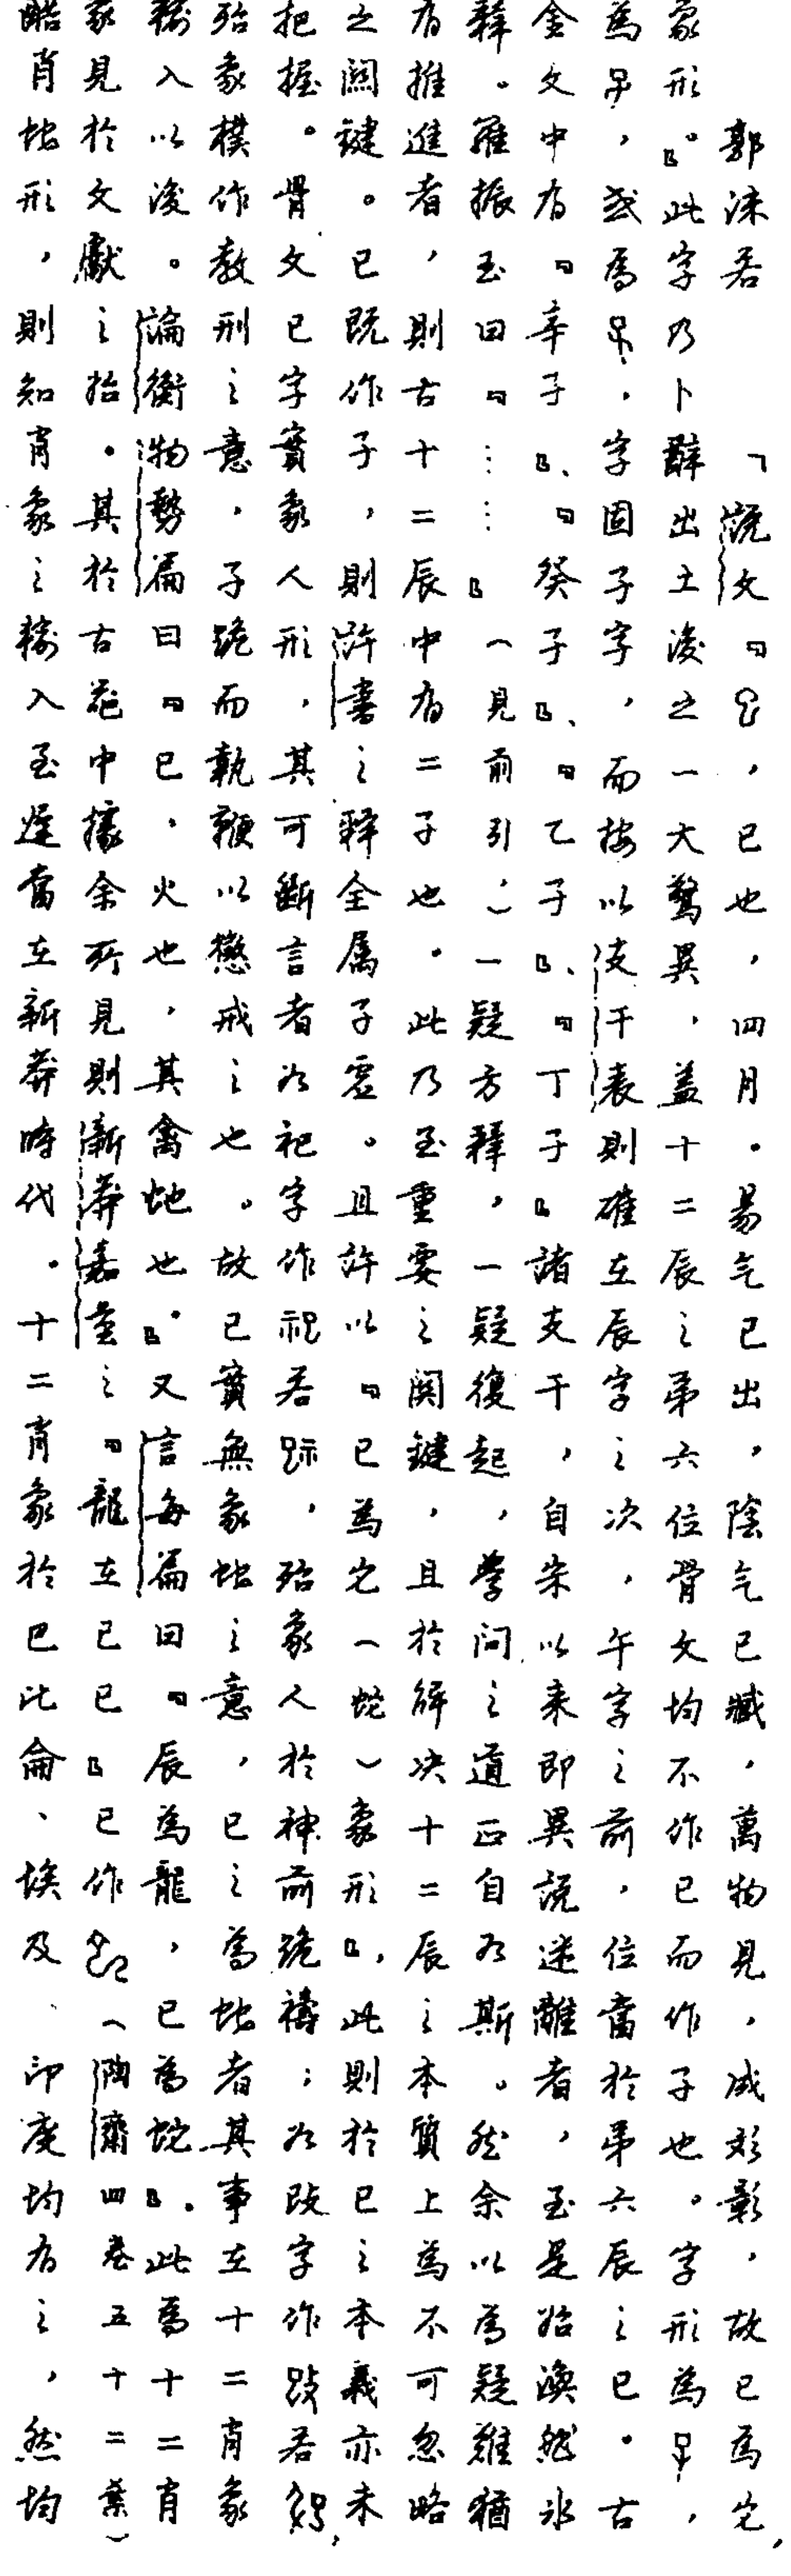 郭沫若 「說文『，已也，四月。昜气已出，陰气已臧，萬物見，成彣彰，故已為它，
象形。』此字乃卜辭出土後之一大驚異，蓋十二辰之弟六位骨文均不作巳而作子也。字形為，
為，或為，字固子字，而按以支干表則確在辰字之次，午字之前，位當於弟六辰之巳。古
金文中有『辛子』、『癸子』、『乙子』、『丁子』諸支干，自宋以來即異說迷離者，至是始渙然冰
釋。羅振玉曰『……』（見前引）一疑方釋，一疑復起，學問之道正自如斯。然余以為疑難猶
有推進者，則古十二辰中有二子也。此乃至重要之関鍵，且於解决十二辰之本質上為不可忽略
之関鍵。巳既作子，則許書之釋全属子虛。且許以『巳為它（蛇）象形』，此則於巳之本義亦未
把握。骨文巳字實象人形，其可斷言者如祀字作祝若，殆象人於神前跪禱；如改字作若，
殆象樸作教刑之意，子跪而執鞭以懲戒之也。故巳實無象蛇之意，巳之為蛇者其事在十二肖象
輸入以後。論衡物勢篇曰『巳，火也，其禽蛇也』。又言毒篇曰『辰為龍，巳為蛇』。此為十二肖
象見於文獻之始。其於古器中據余所見則新莽嘉量之『龍在己巳』巳作（陶齋四卷五十二葉）
皓肖蛇形，則知肖象之輸入至遲當在新莽時代。十二肖象於巴比侖、埃及、印度均有之，然均